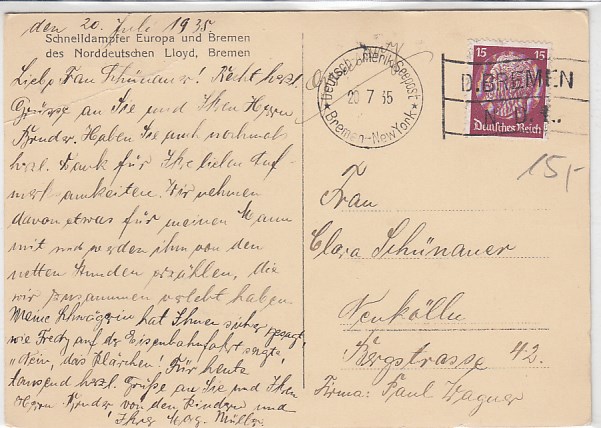 den 20. Juli 1935.
Schnelldampfer Europa und Bremen
des Norddeutschen Lloyd, Bremen
Liebe Frau Schünauer! Recht herzl.
Grüsse an Sie und Ihren Herrn
Bruder. Haben Sie noch nochmals
herzl. Dank für Ihre lieben Auf-
merksamkeiten. Wir nehmen
davon etwas für meinen Mann
mit und werden ihm von den
netten Stunden erzählen, die
wir zusammen verlebt haben.
Meine Schwägerin hat Ihnen sicher gesagt,
wie Fredy auf der Eisenbahnfahrt sagte:
"Nein, das Klärchen! Für heute
tausend herzl. Grüße an Sie und Ihren
Herrn Bruder von den Kindern und
Ihrer Marg. Müller
Deutsch-Amerik. Seepost
20 7 35
Bremen-New York
15 15
D. BREMEN
N. D. L.
Deutsches Reich
15,-
Frau
Clara Schünauer
Neukölln
Bergstrasse 42.
Firma: Paul Wagner